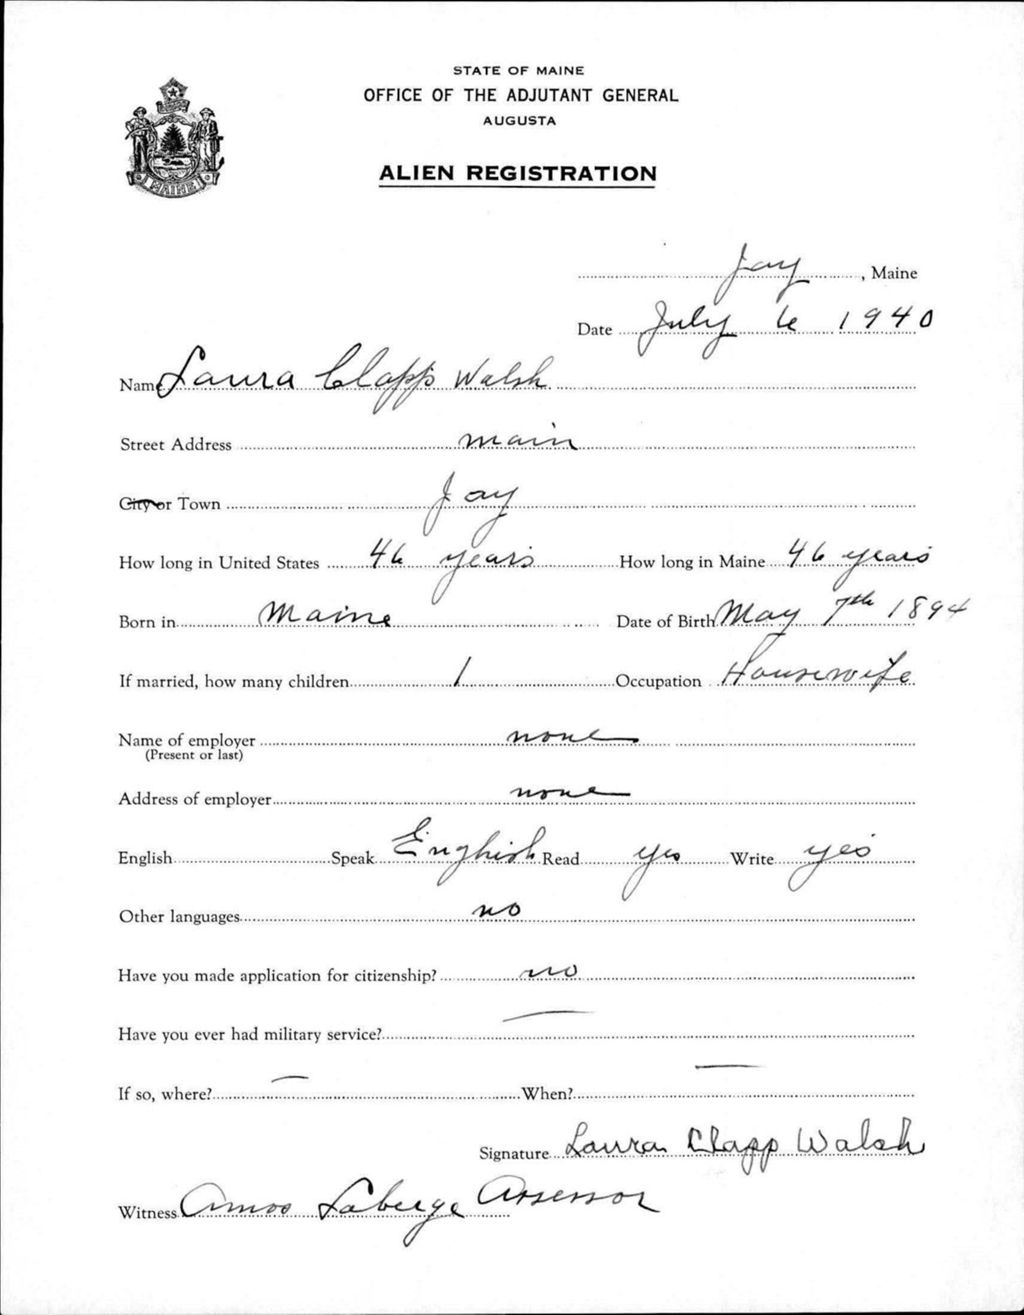 STATE OF MAINE
OFFICE OF THE ADJUTANT GENERAL
AUGUSTA
ALIEN REGISTRATION
MAINE
Jay, Maine
Date July 6 1940
Name Laura Clapp Walsh
Street Address main
City or Town Jay
How long in United States 46 years How long in Maine 46 years
Born in Maine Date of Birth May 7th 1894
If married, how many children 1 Occupation Housewife
Name of employer none
(Present or last)
Address of employer none
English Speak English Read yes Write yes
Other languages no
Have you made application for citizenship? no
Have you ever had military service? —
If so, where? — When? —
Signature Laura Clapp Walsh
Witness Amos Laberge Assessor